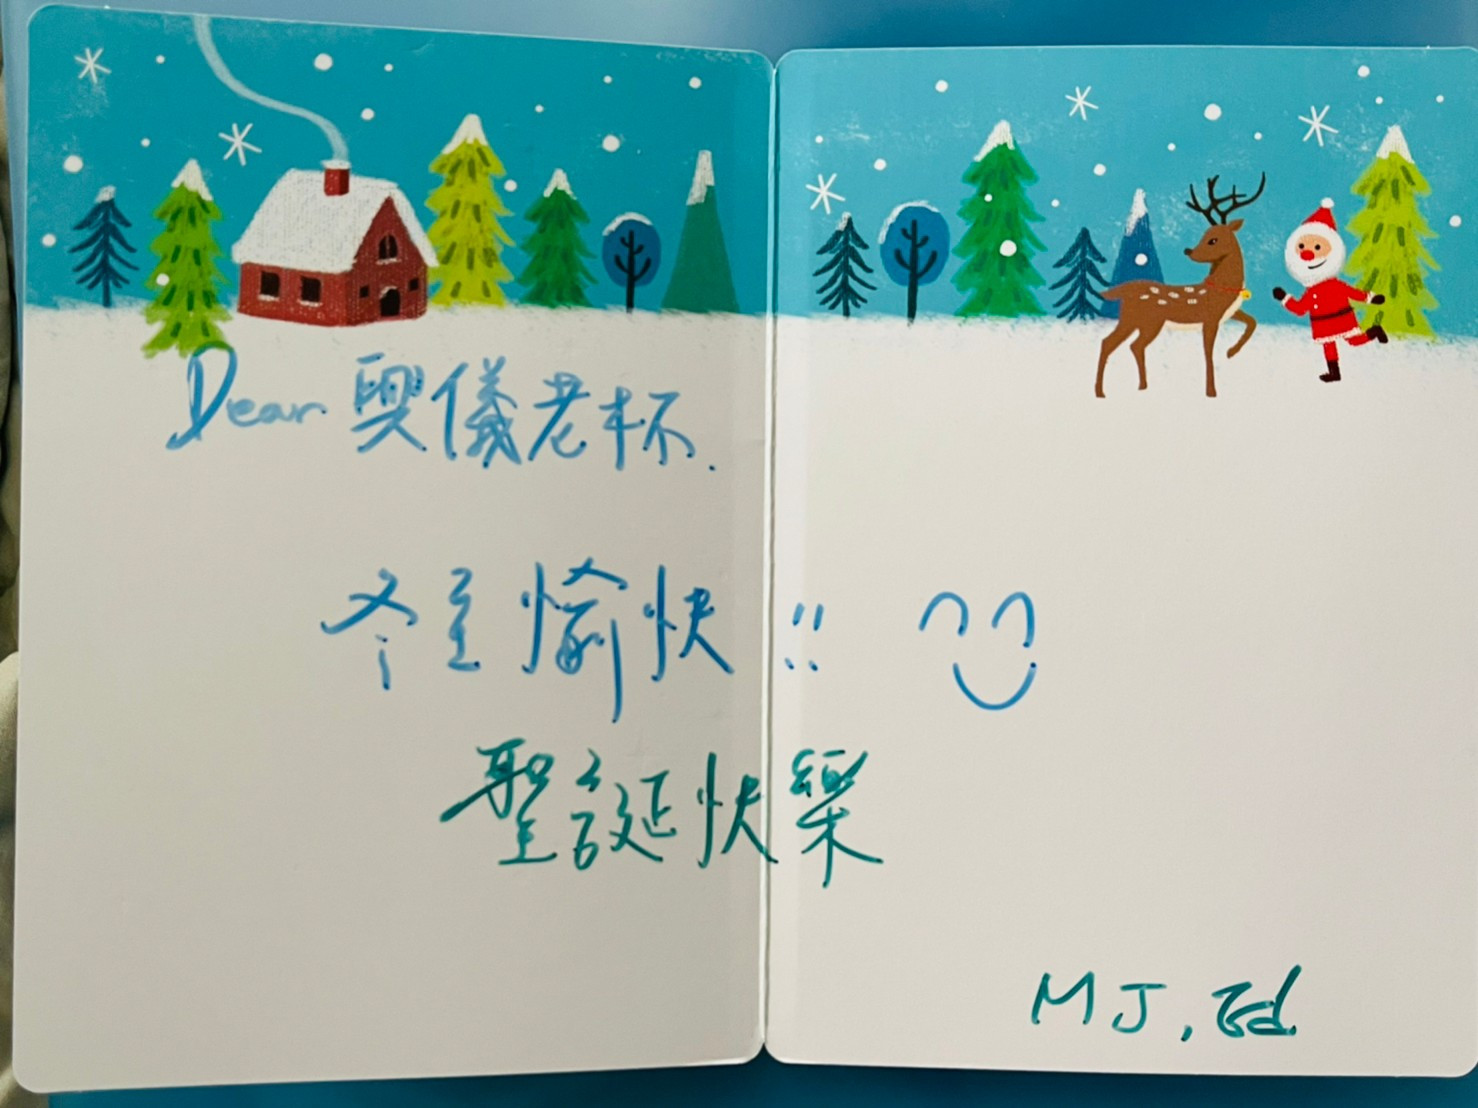 Dear 奧儀老杯.
冬至愉快!!
聖誕快樂
MJ,